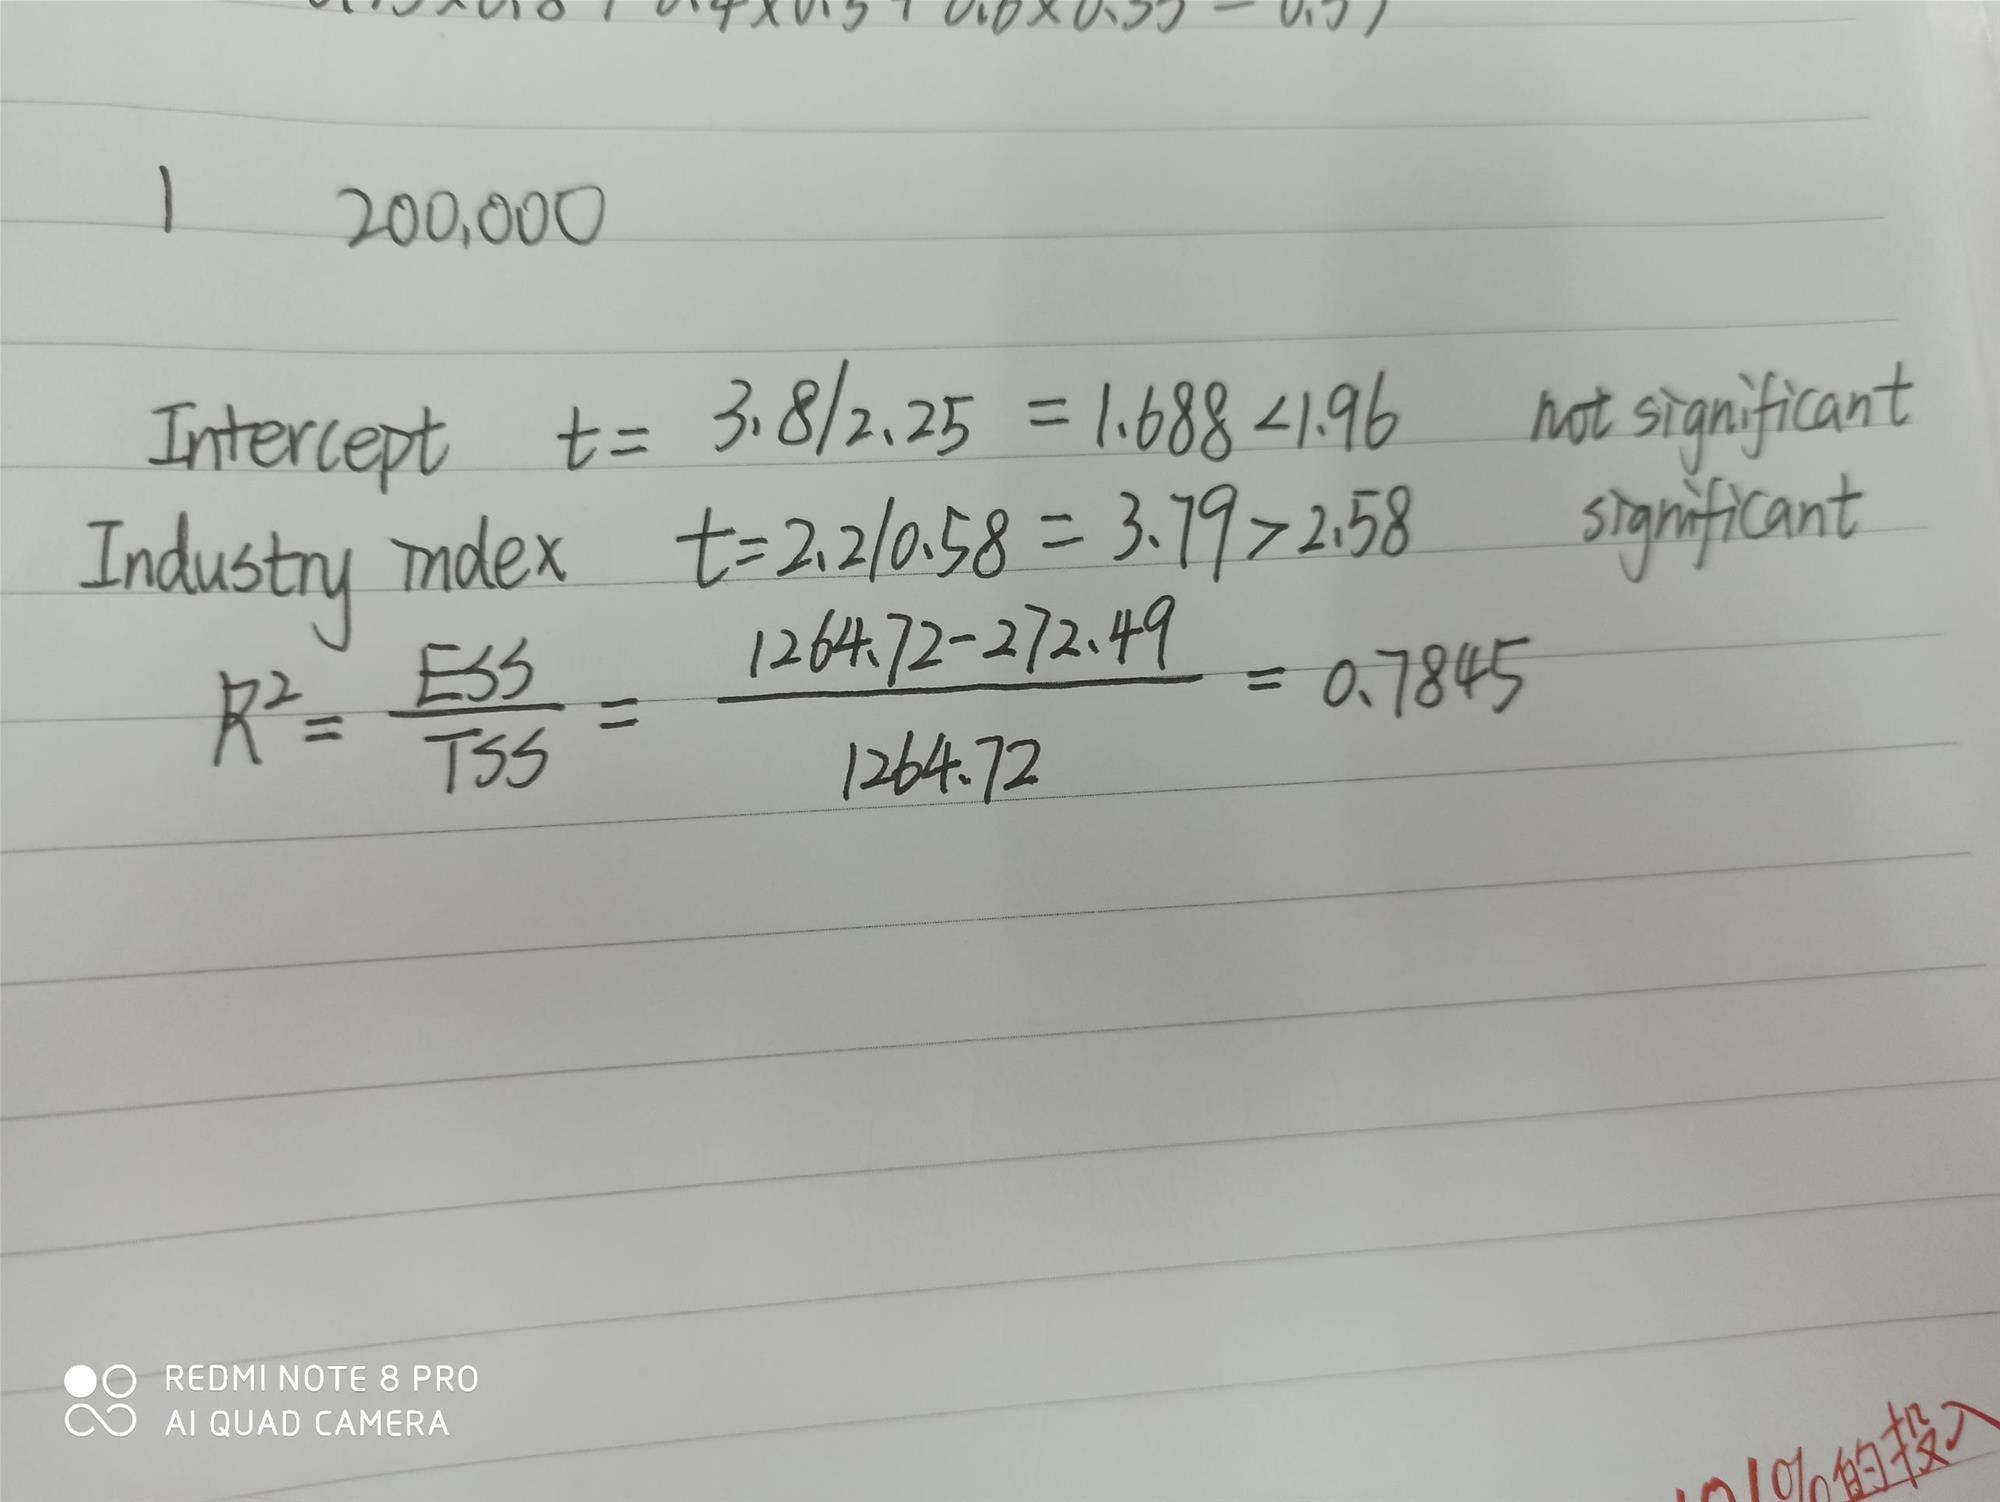 0.4×0.5+0.6×0.55=0.57
1 200,000
Intercept t= 3.8/2.25 =1.688<1.96 not significant
Industry index t=2.2/0.58 = 3.79>2.58 significant
R²= ESS/TSS = 1264.72-272.49/1264.72 = 0.7845
REDMI NOTE 8 PRO
AI QUAD CAMERA
1%的投入